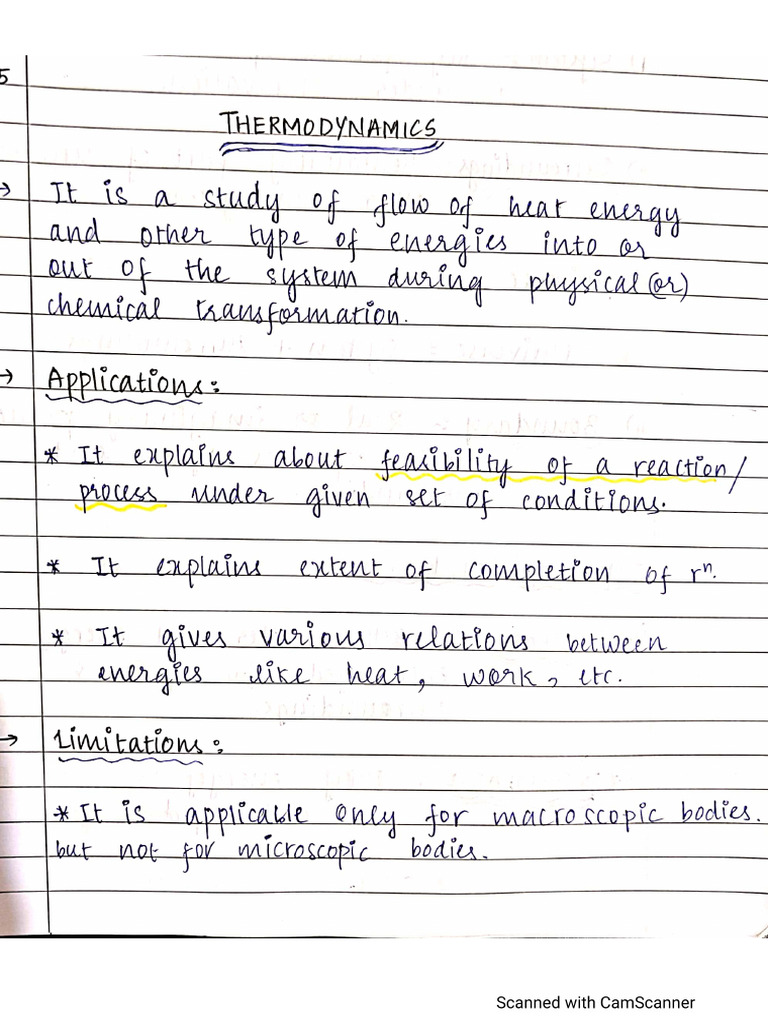 5
THERMODYNAMICS
→ It is a study of flow of heat energy
and other type of energies into or
out of the system during physical (or)
chemical transformation.
→ Applications:
* It explains about feasibility of a reaction/
process under given set of conditions.
* It explains extent of completion of rⁿ.
* It gives various relations between
energies like heat, work, etc.
→ Limitations:
* It is applicable only for macroscopic bodies.
but not for microscopic bodies.
Scanned with CamScanner